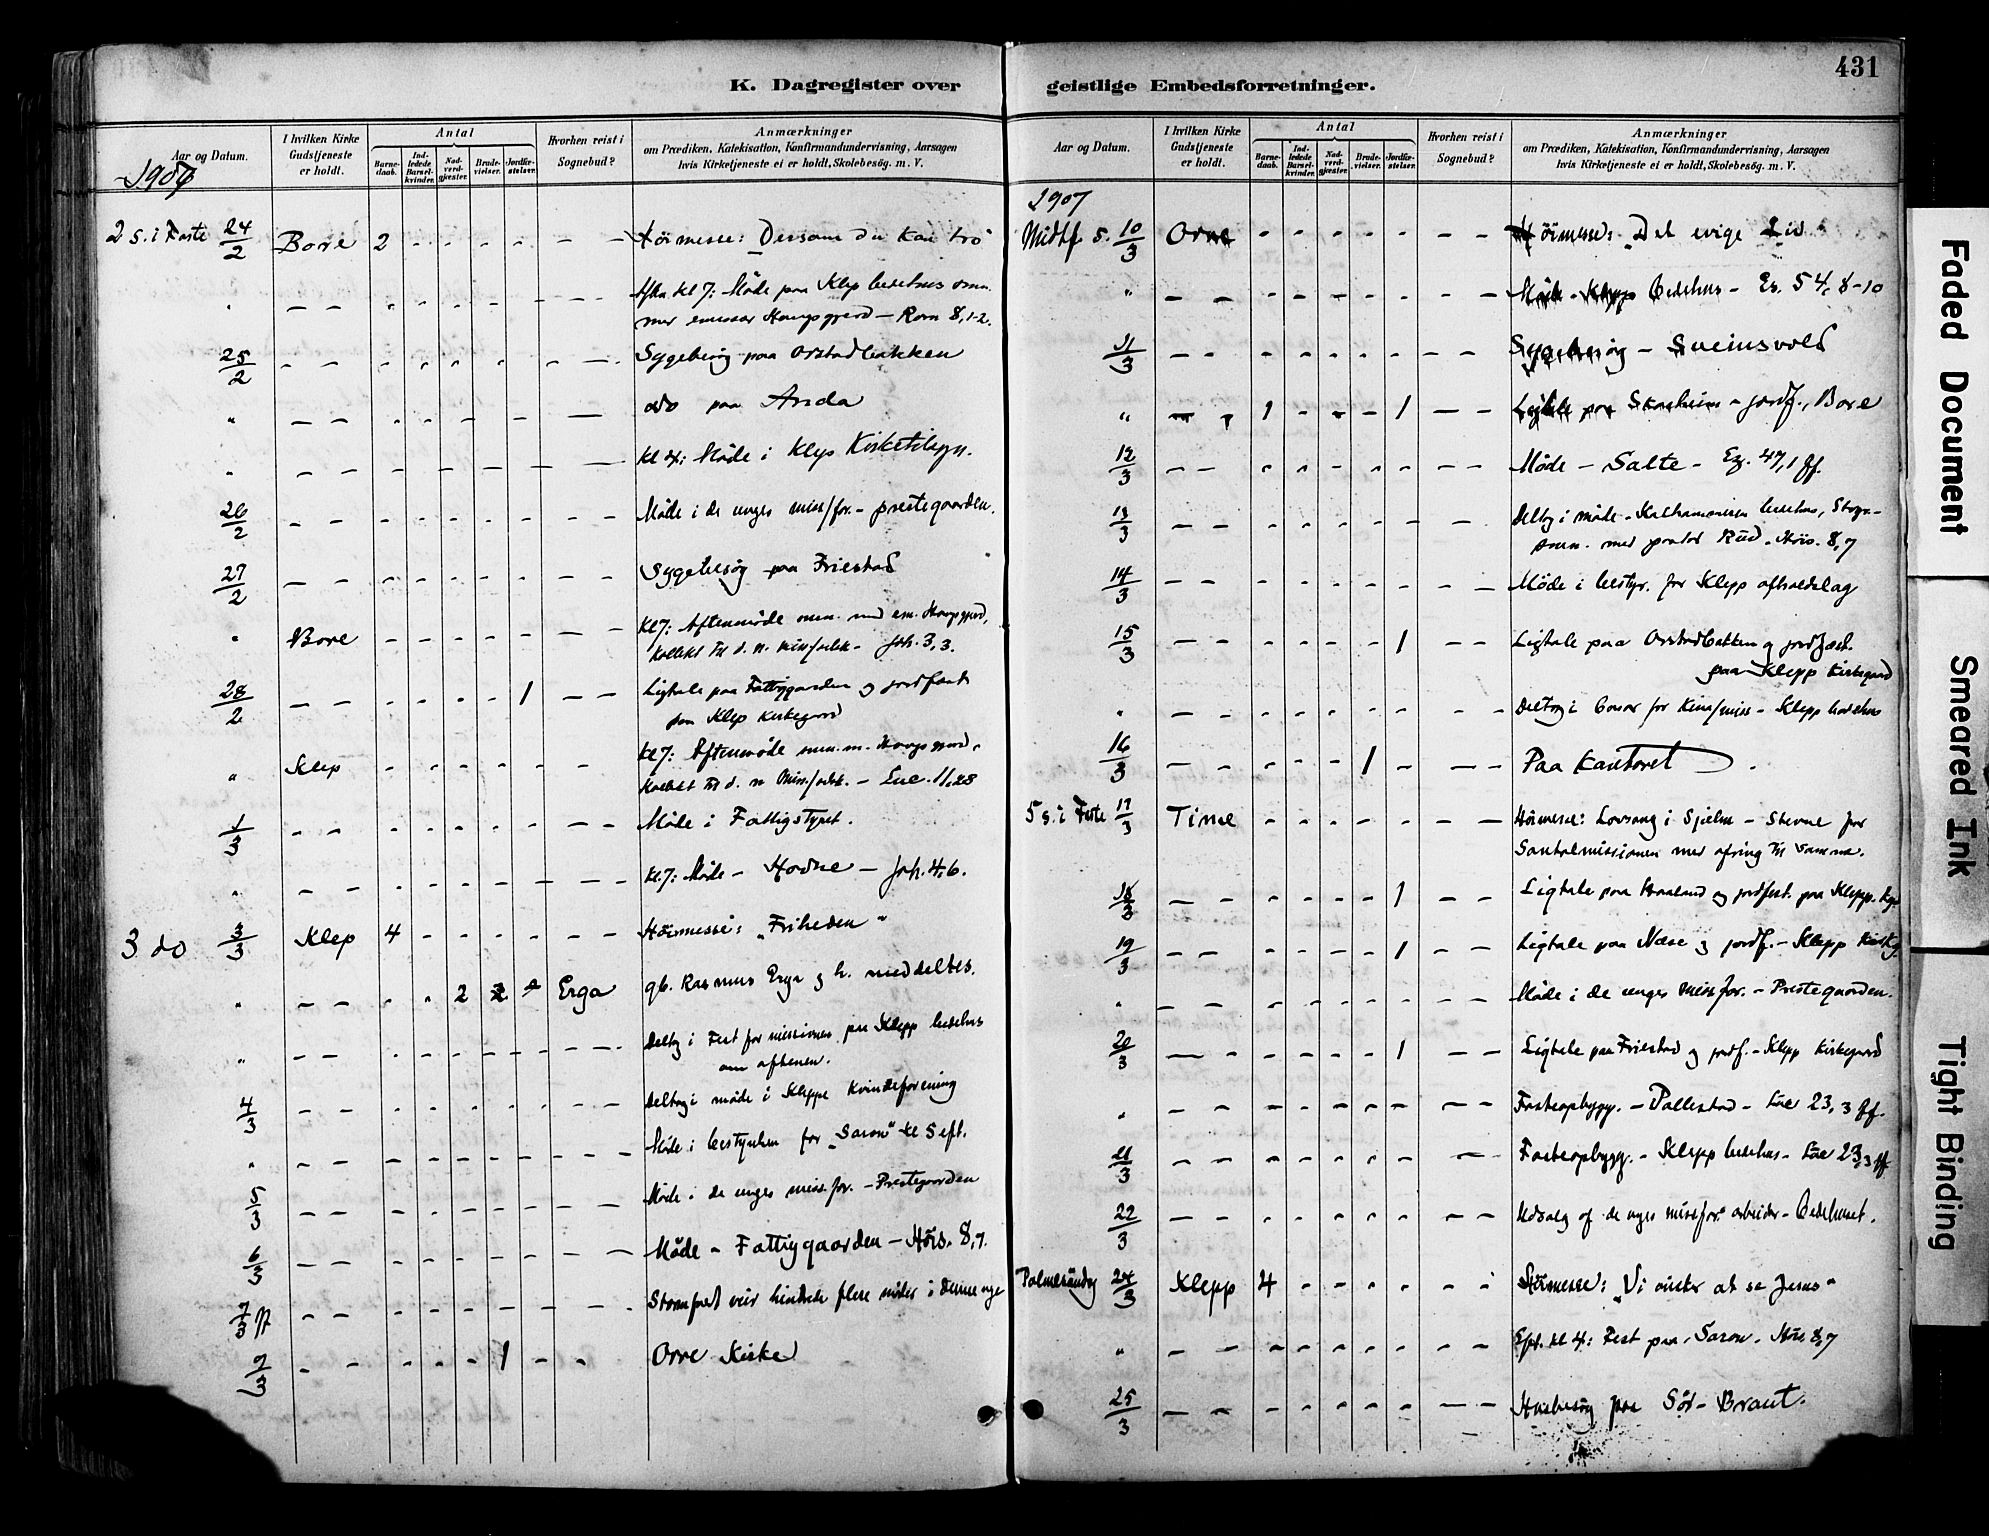 K. Dagregister over
Aar og Datum.
I hvilken Kirke Gudstjeneste er holdt.
Antal
Barnedaab.
Indledede Barselkvinder.
Nadverdgjæster.
Brudevielser.
Jordfæstelser.
Hvorhen reist i Sognebud?
Anmærkninger
om Prædiken, Katekisation, Konfirmandundervisning, Aarsagen
hvis Kirketjeneste ei er holdt, Skolebesøg. m. V.
2 s. i Faste 24/2 Bore 2 - - - - - - Høimesse: "Dersom du kan tro"
" - - - - Kl 7: Møde paa Klep bedehus
Rom 8,1-2.
25/2 - - Sygebesøg paa Orstadbakken
" - - do paa Anda
" - - kl 4: Møde i Klep Kirketilsyn.
26/2 - - Møde i de unges miss/for. - prestegaarden.
27/2 - - Sygebesøg paa Friestad
" Bore - - kl 7: Aftenmøde
Joh. 3,3.
28/2 - - 1 - - Ligtale paa Fattiggaarden og jordfæst
paa Klep Kirkegaard
" Klep - - kl 7: Aftenmøde
Luc. 11,28
1/3 - - Møde i Fattigstyret.
" - - kl. 7: Møde - Hodne - Joh. 4,6.
3 do 3/3 Klep 4 - - Høimesse: "Friheden"
" - - 2 Erga gb. Rasmus Erga og h. meddeltes.
" - - Deltog i Fest for missionen paa Klepp bedehus
om aftenen.
4/3 - - Deltog i møde i Kleppe Kvindeforening
" - - Møde i bestyrelsen for "Saron" kl 5 eft.
5/3 - - Møde i de unges miss.for. - Prestegaarden
6/3 - - Møde - Fattiggaarden - Høis. 8,7.
7/3 ff - - veir hindrede flere møder i denne uge
9/3 - - 1 - - Orre Kirke
geistlige Embedsforretninger.
431
Aar og Datum.
I hvilken Kirke Gudstjeneste er holdt.
Antal
Barnedaab.
Indledede Barselkvinder.
Nadverdgjæster.
Brudevielser.
Jordfæstelser.
Hvorhen reist i Sognebud?
Anmærkninger
om Prædiken, Katekisation, Konfirmandundervisning, Aarsagen
hvis Kirketjeneste ei er holdt, Skolebesøg. m. V.
1907
Midtf s. 10/3 Orre - - Høimesse: "Det evige Liv"
" - - Møde - Klepp Bedehus - Es. 54, 8-10
11/3 - - Sygebesøg - Sveinsvold
" - - 1 - - - 1 - - Ligtale paa Skasheim - jordf., Bore
12/3 - - Møde - Salte - Ez. 47,1 ff.
13/3 - - Deltog i møde - bedehus,
Høis. 8,7
14/3 - - Møde i bestyr. for Klepp afholdslag
15/3 - - 1 - - Ligtale paa Orstadbakken og jordfæst.
paa Klepp Kirkegaard
" - - Deltog i Basar for Kina/miss - Klepp bedehus
16/3 - - 1 - - Paa Kontoret
5 s. i Faste 17/3 Time - - Høimesse: Lovsang i Sjælen - Stevne for
Santalmissionen med ofring til samme.
18/3 - - 1 - - Ligtale paa Braaland og jordfæst. paa Klepp.
19/3 - - 1 - - Ligtale paa Næse og jordf. - Klepp Kirkg.
" - - Møde i de unges miss for. - Prestegaarden.
20/3 - - 1 - - Ligtale paa Friestad og jordf. - Klepp Kirkegaard
" - - Fasteopbygg. - Pollestad - Luc 23,3 ff.
21/3 - - Fasteopbygg. - Klepp bedehus - Luc 23,3 ff
22/3 - - Udsalg af de unges missfor.s arbeider - Bedehuset.
Palmesøndag 24/3 Klepp 4 - - Høimesse: "Vi ønsker at se Jesus"
" - - Eft. kl 4: Fest paa Saron. Høis 8,7
25/3 - - Husbesøg paa Sør-Braut.
Faded Document
Smeared Ink
Tight Binding